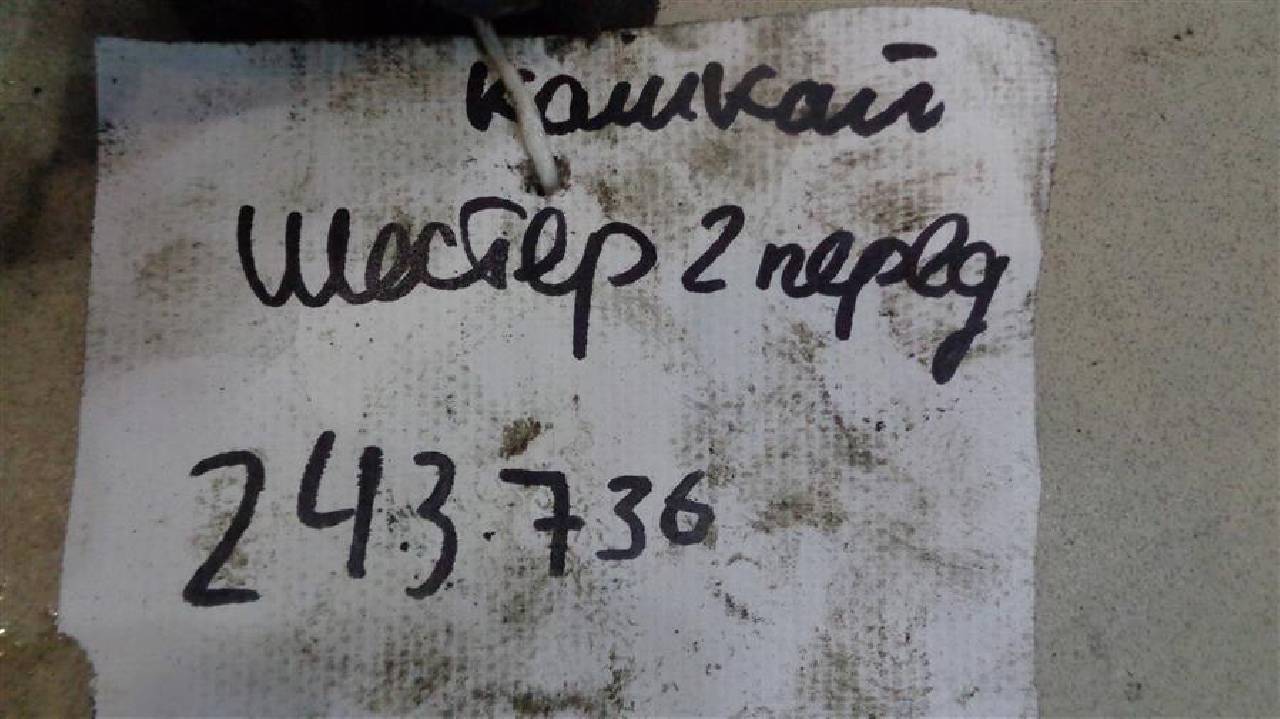 кашкай
Шестер 2 перед
243.736